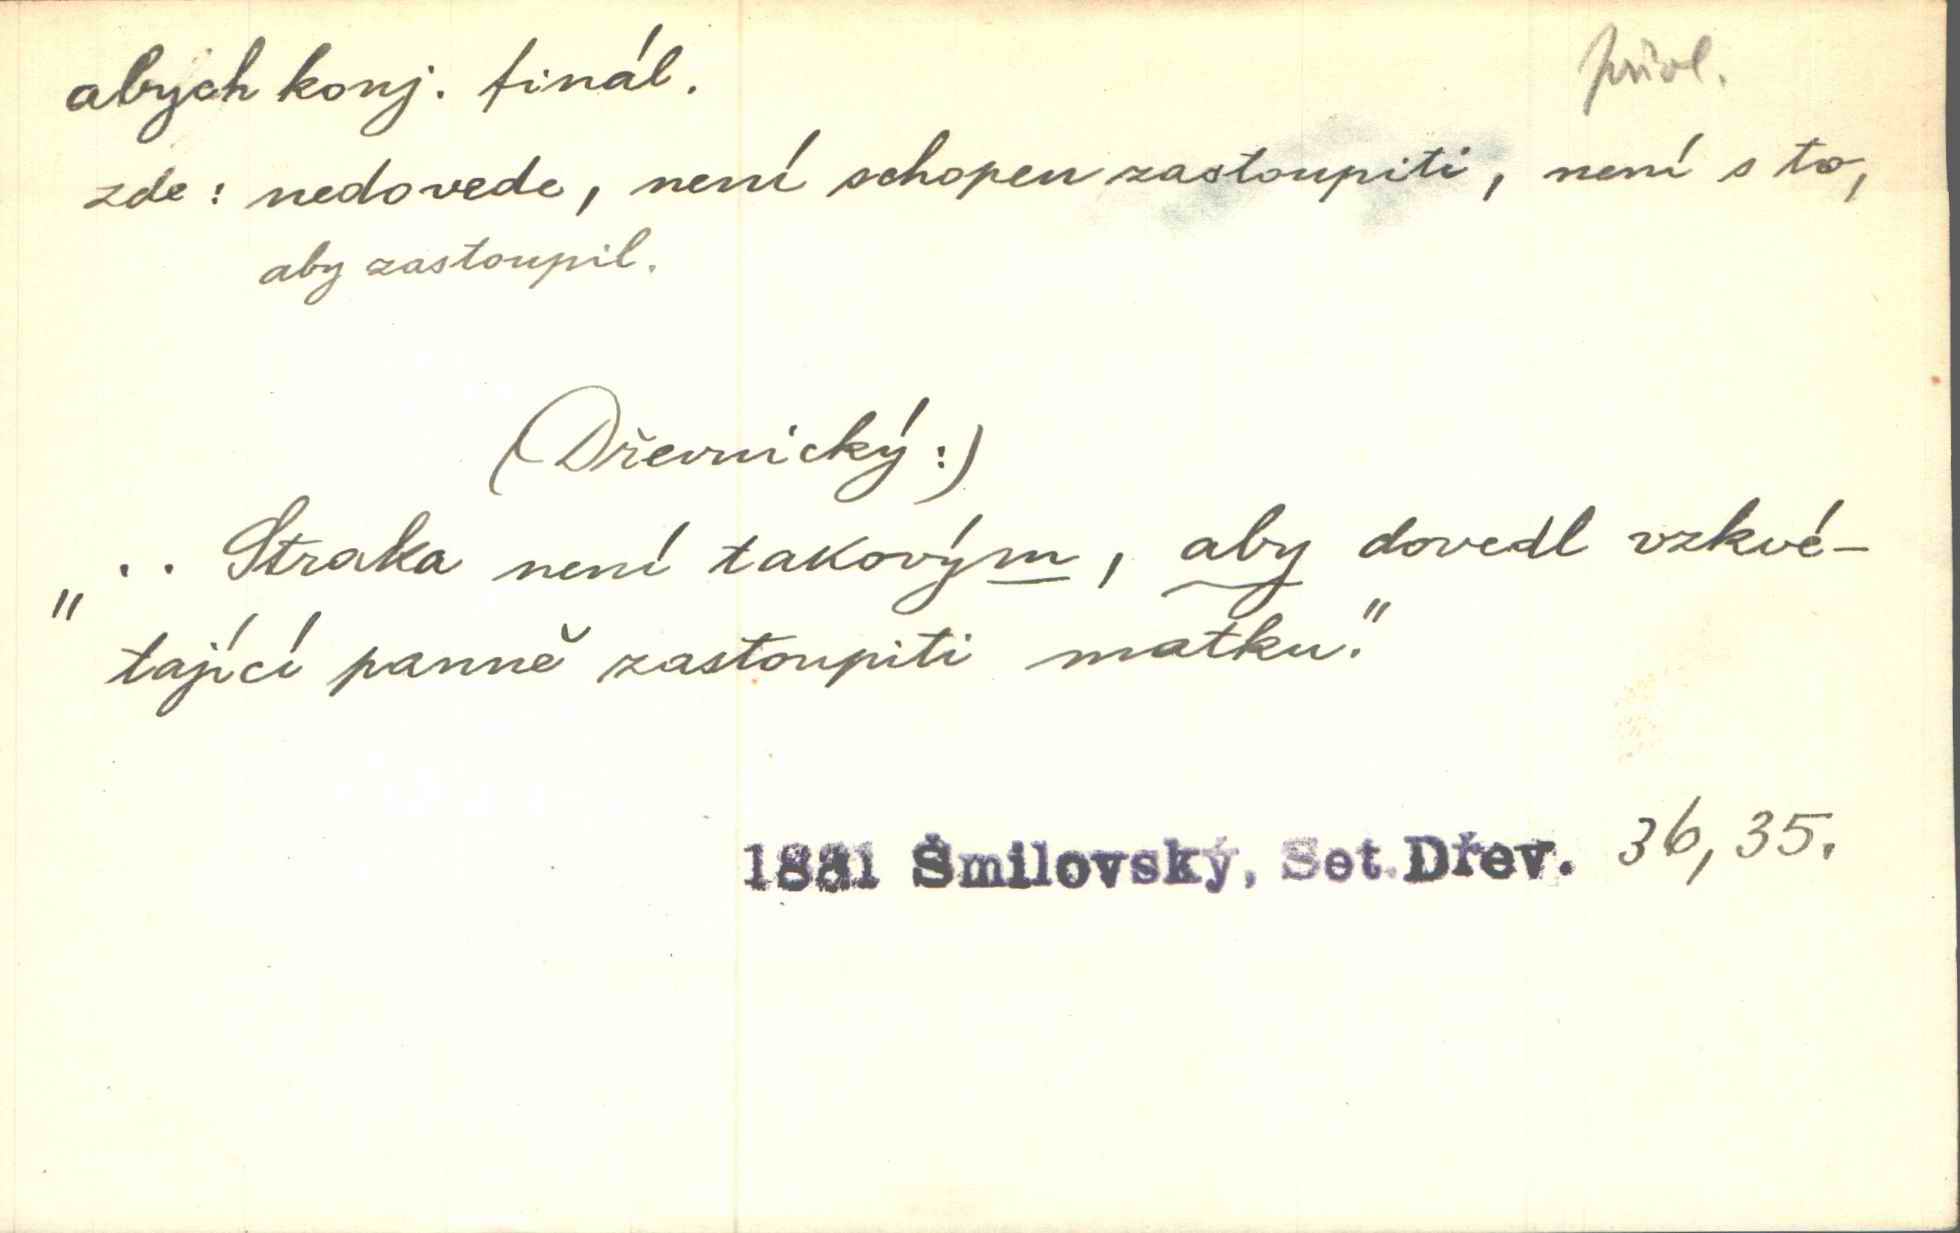 abych konj. finál.
přívl.
zde: nedovede, není schopen zastoupiti, není s to,
aby zastoupil.
(Dřevnický:)
„.. Straka není takovým, aby dovedl vzkvé-
tající panně zastoupiti matku."
1881 Šmilovský, Set. Dřev. 36, 35.